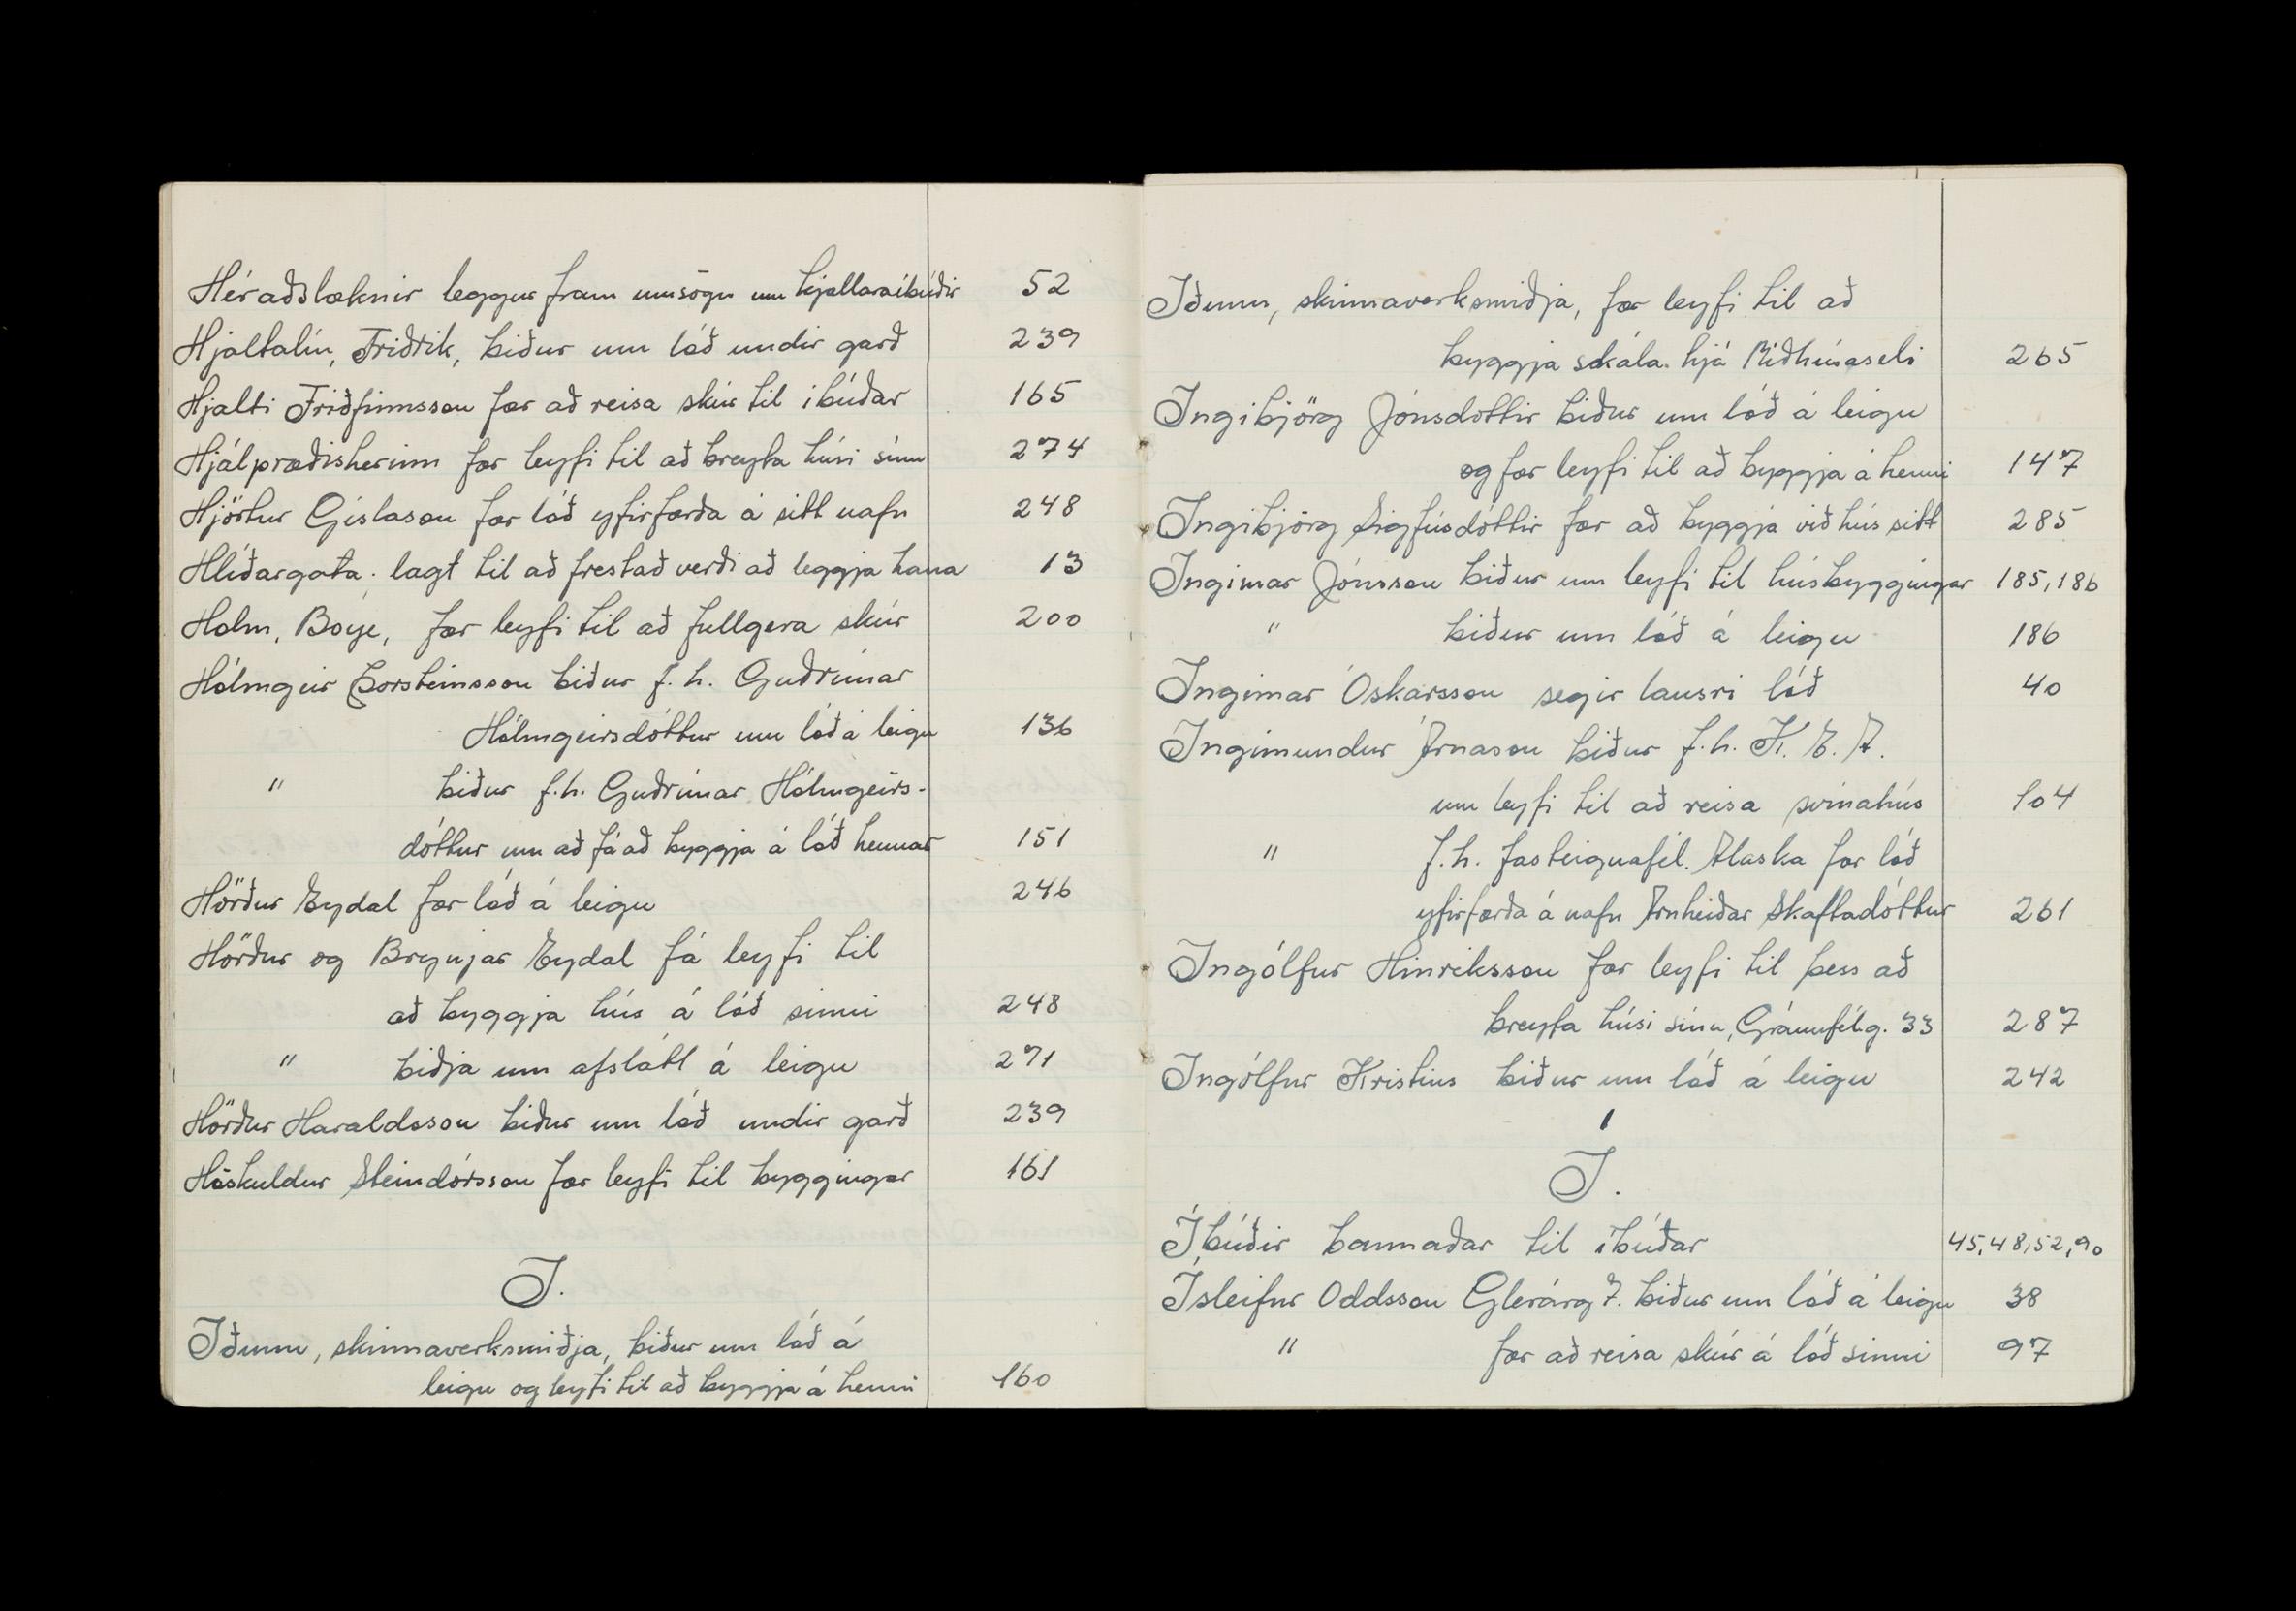 Héraðslæknir leggur fram umsögn um kjallaraíbúðir 52
Hjaltalín, Friðrik, biður um lóð undir garð 239
Hjalti Friðfinnsson fær að reisa skúr til íbúðar 165
Hjálpræðisherinn fær leyfi til að breyta húsi sínu 274
Hjörtur Gíslason fær lóð yfirfærða á sitt nafn 248
Hlíðargata; lagt til að frestað verði að leggja hana 13
Holm, Boye, fær leyfi til að fullgera skúr 200
Hólmgeir Þorsteinsson biður f.h. Guðrúnar
Hólmgeirsdóttur um lóð á leigu 136
" biður f.h. Guðrúnar Hólmgeirs-
dóttur um að fá að byggja á lóð hennar 151
Hörður Eydal fær lóð á leigu 246
Hörður og Brynjar Eydal fá leyfi til
að byggja hús á lóð sinni 248
" biðja um afslátt á leigu 271
Hörður Haraldsson biður um lóð undir garð 239
Höskuldur Steindórsson fær leyfi til byggingar 161
I.
Iðunn, skinnaverksmiðja, biður um lóð á
leigu og leyfi til að byggja á henni 160
Iðunn, skinnaverksmiðja, fær leyfi til að
byggja skála hjá Miðhúaseli 265
Ingibjörg Jónsdóttir biður um lóð á leigu
og fær leyfi til að byggja á henni 147
Ingibjörg Sigfúsdóttir fær að byggja við hús sitt 285
Ingimar Jónsson biður um leyfi til húsbyggingar 185, 186
" biður um lóð á leigu 186
Ingimar Óskarsson segir lausri lóð 40
Ingimundur Árnason biður f.h. K.E.A.
um leyfi til að reisa svínahús 104
" f.h. fasteignafél. Alaska fær lóð
yfirfærða á nafn Arnheiðar Skaftadóttur 261
Ingólfur Hinriksson fær leyfi til þess að
breyta húsi sínu, Gránufélg. 33 287
Ingólfur Kristins biður um lóð á leigu 242
Í.
Íbúðir bannaðar til íbúðar 45, 48, 52, 90
Ísleifur Oddsson Glerárg 7. biður um lóð á leigu 38
" fær að reisa skúr á lóð sinni 97